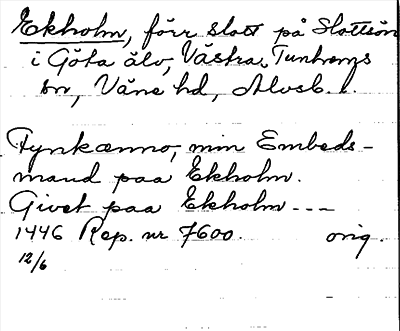 Ekholm, förr slott på Slottsön
i Göta älv, Västra Tunhems
sn, Väne hd, Älvsb. l.
Tynkænno, min Embeds-
mand paa Ekholm.
Givet paa Ekholm ---
1446 Rep. nr 7600. orig.
12/6